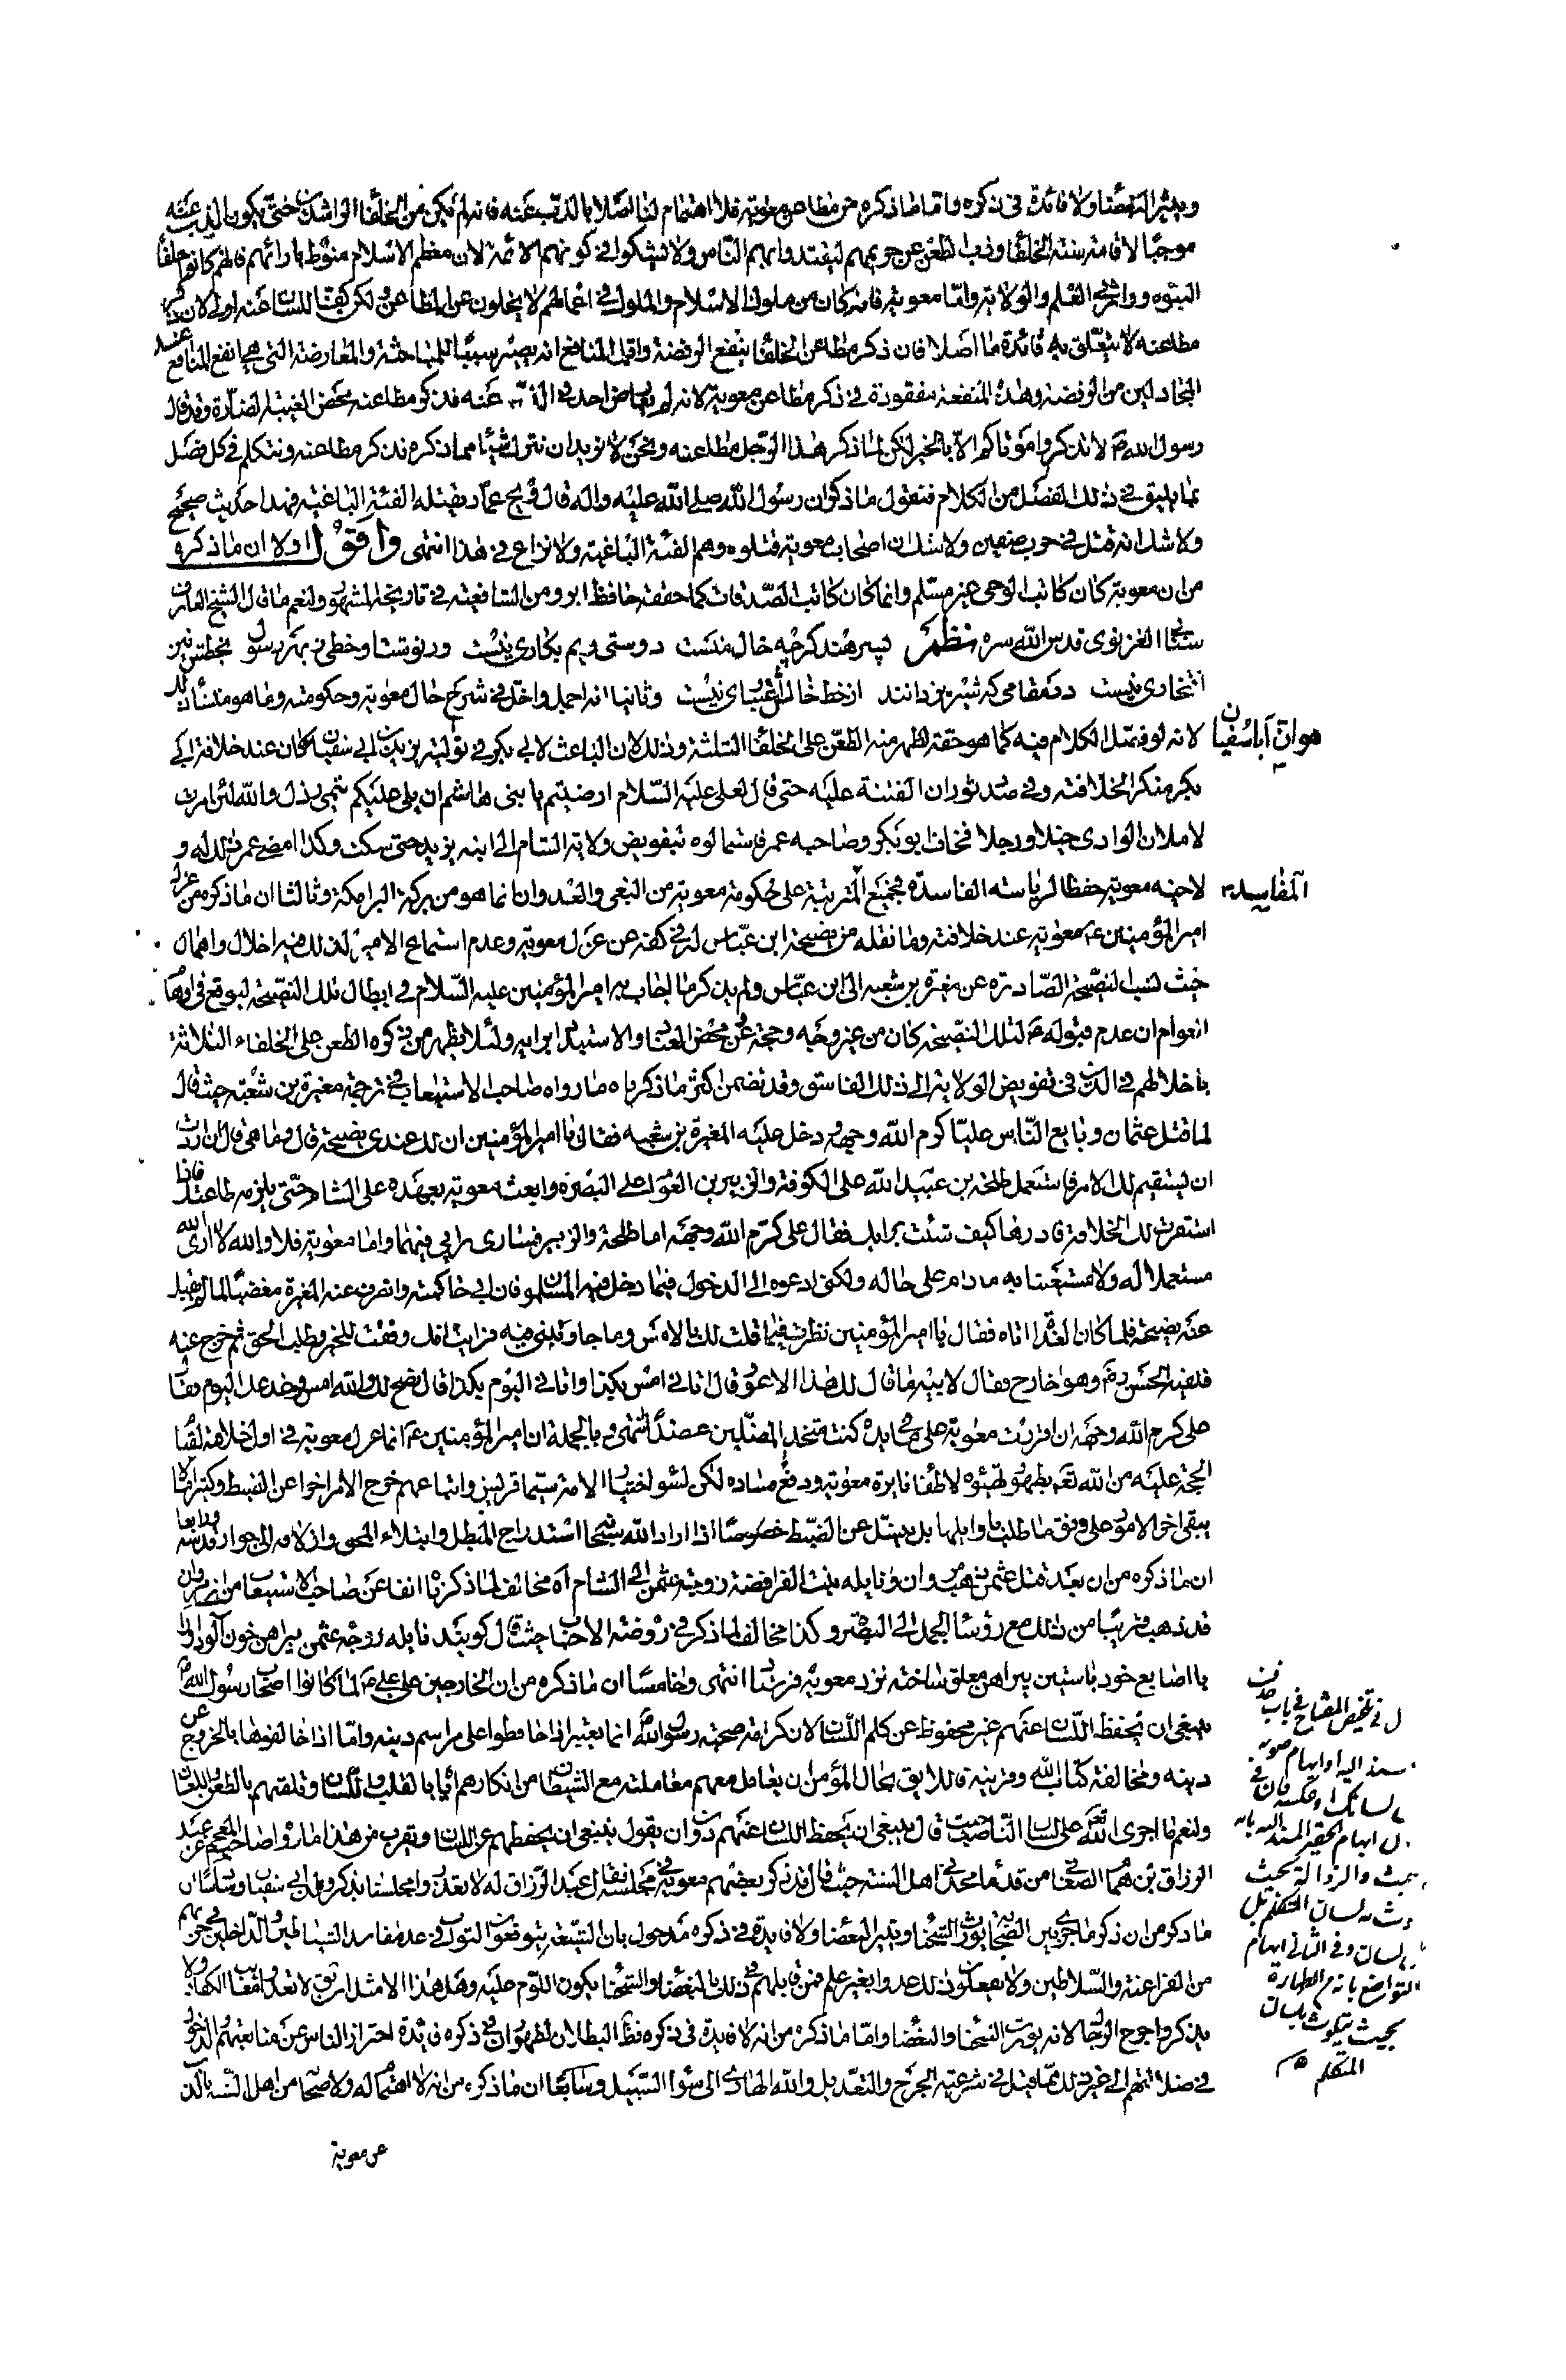 ويثير البغضاء ولا فائدة في ذكره واما ما ذكره من مطاعن معوية فلا اهتمام لنا اصلا بالذب عنه فانه لم يكن من الخلفا الراشدين حتى يكون الذب عنه
موجبا لاقامة سنة الخلفا وذب الطعن عن حريمهم ليقتدي بهم الناس ولا يشكوا في كونهم الائمة لان معظم الاسلام منوط بارائهم فانهم كانوا خلفا
النبوة ووارثي العلم والولاية واما معوية فانه كان من ملوك الاسلام والملوك في اعمالهم لا يخلون عن المطاعن ولكن كف اللسان عنه اولى لان ذكر
مطاعنه لا يتعلق به فائدة ما اصلا فان ذكر مطاعن الخلفا ينفع الرفضة واقل المنافع انه يصير سببا للمباحثة والمعارضة التي هي انفع المنافع عند
المجادلين من الرفضة وهذه المنفعة مفقودة في ذكر مطاعن معوية لانه لم يعارض احد في الذب عنه فذكر مطاعنه محض الغيبة الضارة وقد قال
رسول الله ص لا تذكروا موتاكم الا بالخير لكن لما ذكر هذا الرجل مطاعنه ونحن لا نريد ان نترك شيئا مما ذكره نذكر مطاعنه ونتكلم في كل فصل
بما يليق في ذلك الفصل من الكلام فنقول ما ذكر ان رسول الله صلى الله عليه واله قال ويح عمار يقتله الفئة الباغية فهذا حديث صحيح
ولا شك انه قتل في حرب صفين ولا شك ان اصحاب معوية قتلوه وهم الفئة الباغية ولا نزاع في هذا انتهى واقول اولا ان ما ذكره
من ان معوية كان كاتب الوحي غير مسلم وانما كان كاتب الصدقات كما حققه حافظ ابرو من الشافعية في تاريخه المشهور ولنعم ما قال الشيخ العارف
سنائي الغزنوي قدس الله سره نظم پسر هند گرچه خال منست دوستی ویم بکاری نیست ور نوشت او خطی ز بهر رسول بخطش نیز
افتخاری نیست در مقامی که شیر یزدانند از خط خال اعتباری نیست وثانيا انه اجمل واخل في شرح حال معوية وحكومته وما هو منشأ ذلك
لانه لو فصل الكلام فيه كما هو حقه لظهر منه الطعن على الخلفا الثلثة وذلك لان الباعث لابي بكر في تولية يزيد بن ابي سفيان كان عند خلافة ابي
هو ان ابا سفيان
بكر منكرا لخلافته وفي صدد ثوران الفتنة عليه حتى قال لعلي عليه السلام ارضيتم يا بني هاشم ان يلي عليكم تيمي رذل والله لئن امرت
لاملأن الوادي خيلا ورجلا فخاف ابو بكر وصاحبه عمر فاستمالوه بتفويض ولاية الشام الى ابنه يزيد حتى سكت وكذا امضى عمر ذلك له و
لاخيه معوية حفظا لرياسته الفاسدة فجميع المترتبة على حكومة معوية من البغي والعدوان انما هو من بركة البرامكة وثالثا ان ما ذكره من عزل
المفاسد
امير المؤمنين ع معوية عند خلافته وما نقله من نصيحة ابن عباس له في كفه عن عزل معوية وعدم استماع الامير لذلك فيه اخلال واهمال
حيث نسب النصيحة الصادرة عن مغيرة بن شعبه الى ابن عباس ولم يذكر ما اجاب به امير المؤمنين عليه السلام في ابطال تلك النصيحة ليوقع في اوهام
العوام ان عدم قبوله ع لتلك النصيحة كان من غير وجه وحجة عن محض العناد والاستبداد برايه ولئلا يظهر من ذكره الطعن على الخلفاء الثلاثة
باخلالهم في الدين في تفويض الولاية الى ذلك الفاسق وقد تضمن اكثر ما ذكرناه ما رواه صاحب الاستيعاب في ترجمة مغيرة بن شعبه حيث قال
لما قتل عثمان وبايع الناس عليا كرم الله وجهه دخل عليه المغيرة بن شعبه فقال يا امير المؤمنين ان لك عندي نصيحة قال وما هي قال ان اردت
ان يستقيم لك الامر فاستعمل طلحه بن عبيد الله على الكوفة والزبير بن العوام على البصرة وابعث معوية بعهده على الشام حتى يلزمه طاعتك فاذا
استقرت لك الخلافة فادرها كيف شئت برايك فقال علي كرم الله وجهه اما طلحة والزبير فسارى رايي فيهما واما معوية فلا والله لا اراني الله
مستعملا له ولا مستعينا به ما دام على حاله ولكني ادعوه الى الدخول فيما دخل فيه المسلمون فان ابى حاكمته وانصرف عنه المغيرة مغضبا لما لم يقبل
عنه نصيحته فلما كان الغد اتاه فقال يا امير المؤمنين نظرت فيما قلت لك بالامس وما جاوبتني فيه فرايت انك وفقت للخير وطلب الحق ثم خرج عنه
فلقيه الحسن رض وهو خارج فقال لابيه ما قال لك هذا الاعور قال اتاني امس بكذا واتاني اليوم بكذا قال نصح لك والله امس وخدعك اليوم فقال
علي كرم الله وجهه ان اقررت معوية على ما في يده كنت متخذ المضلين عضدا انتهى وبالجملة ان امير المؤمنين ع انما عزل معوية في اول خلافته لقيام
الحجة عليه من الله تعم بظهور تهيؤه لاطفا نايرة معوية ودفع فساده لكن لسوء اختيار الامة سيما قريش واتباعهم خرج الامر اخرا عن الضبط وكثيرا ما لا
يبقى اخر الامور على وفق ما طلب باوايلها بل يختل عن الضبط خصوصا اذا اراد الله سبحانه استدراج المبطل وابتلاء المحق وازلافه الى جوار قدسه ورابعا
ان ما ذكره من ان بعد قتل عثمن ذهب مروان ونايله بنت الفرافصة زوجة عثمن الى الشام اه مخالف لما ذكرنا انفا عن صاحب الاستيعاب من ان مروان
قد ذهب قريبا من ذلك مع رؤسا الجمل الى البصرة وكذا مخالف لما ذكر في روضة الاحباب حيث قال گویند نایله زوجه عثمن پیراهن خون آلود او را
با اصابع خود باستین پیراهن معلق ساخته نزد معویه فرستاد انتهى وخامسا ان ما ذكره من ان الخارجين على علي ع لما كانوا اصحاب رسول الله ص
ينبغي ان يحفظ اللسان عنهم غير محفوظ عن كلم اللسان لان كرامة صحبة رسول الله ص انما يعتبر اذا حافظوا على مراسم دينه واما اذا خالفوها بالخروج عن
دينه ومخالفة كتاب الله وقرينه فاللايق بحال المؤمن ان يعامل معهم معاملته مع الشيطان من انكارهم بالقلب واللسان وتلقيهم بالطعن واللعان
ولنعم ما اجرى الله تعم على لسان الناصب حيث قال ينبغي ان يحفظ اللسان عنهم دون ان يقول ينبغي ان يحفظهم عن اللسان ويقرب من هذا ما رواه صاحب المعجم عن عبد
الرزاق بن همام الصنعاني من قدماء محدثي اهل السنة حيث قال قد ذكر بعضهم معوية في مجلسه فقال عبد الرزاق له لا تقذروا مجلسنا بذكر ولد ابي سفيان وسادسا ان
ما ذكر من ان ذكر ما جرى بين الصحابة يورث الشحناء ويثير البغضاء ولا فايدة في ذكره مدخول بان الشيعة يتوقعون الثواب في عد مفاسد الشياطين الداخلين في حزبهم
من الفراعنة والسلاطين ولا يفعلون ذلك عدوا بغير علم فمن قابلهم في ذلك بالبغضاء والشحناء يكون اللوم عليه وهل هذا الا مثل ان يقال لا تعد مقابح الكفار ولا
يذكر اجوج الدجال لانه يورث الشحناء والبغضاء واما ما ذكره من انه لا فايدة في ذكره فظاهر البطلان لظهور ان في ذكره فايدة احتراز الناس عن متابعتهم والدخول
في ضلالتهم الى غير ذلك مما قيل في شرعية الجرح والتعديل والله الهادي الى سواء السبيل وسابعا ان ما ذكره من انه لا اهتمام له ولاصحابه من اهل السنة بالذب
عن معوية
ل في تلخيص المفتاح في باب حذف
سند اليه او ايهام صونه
لسانك او عكسه فان في
ل ايهام تحقير المسند اليه بانه
اللسان وفي الثاني ايهام
التواضع بانه من الطهارة
بحيث يتلوث بلسان
المتكلم